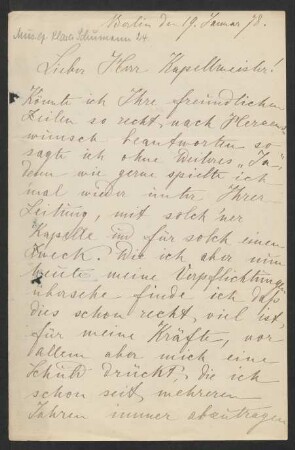 Berlin den 19. Januar 78.
Mus. ep. Clara Schumann 24
Lieber Herr Kapellmeister!
Könnte ich Ihre freundlichen
Zeilen so recht nach Herzens-
wunsch beantworten so
sagte ich ohne Weiteres „Ja“,
denn wie gerne spielte ich
mal wieder unter Ihrer
Leitung, mit solch' ner
Kapelle und für solch einen
Zweck. Wie ich aber nun
heute meine Verpflichtungen
übersehe finde ich daß
dies schon recht viel ist,
für meine Kräfte, vor
allem aber mich eine
Schuld drückt, die ich
schon seit mehreren
Jahren immer abzutragen